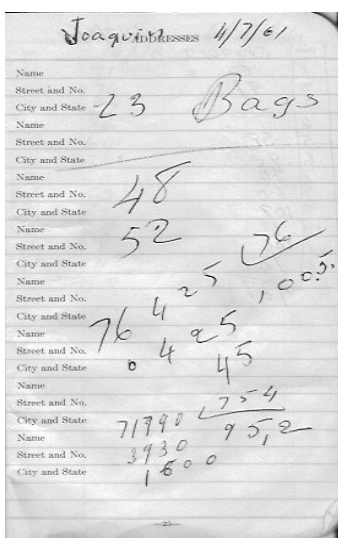 Joaquin ADDRESSES 4/7/61
Name
Street and No.
City and State 23 Bags
Name
Street and No.
City and State
Name
Street and No. 48
City and State
Name 52
Street and No. 76
City and State
Name 4 25 ,005.
Street and No.
City and State 76
Name 4 25
Street and No.
City and State 0 45
Name
Street and No. 754
City and State 71790 95,2
Name
Street and No. 3930
City and State 1500
—25—